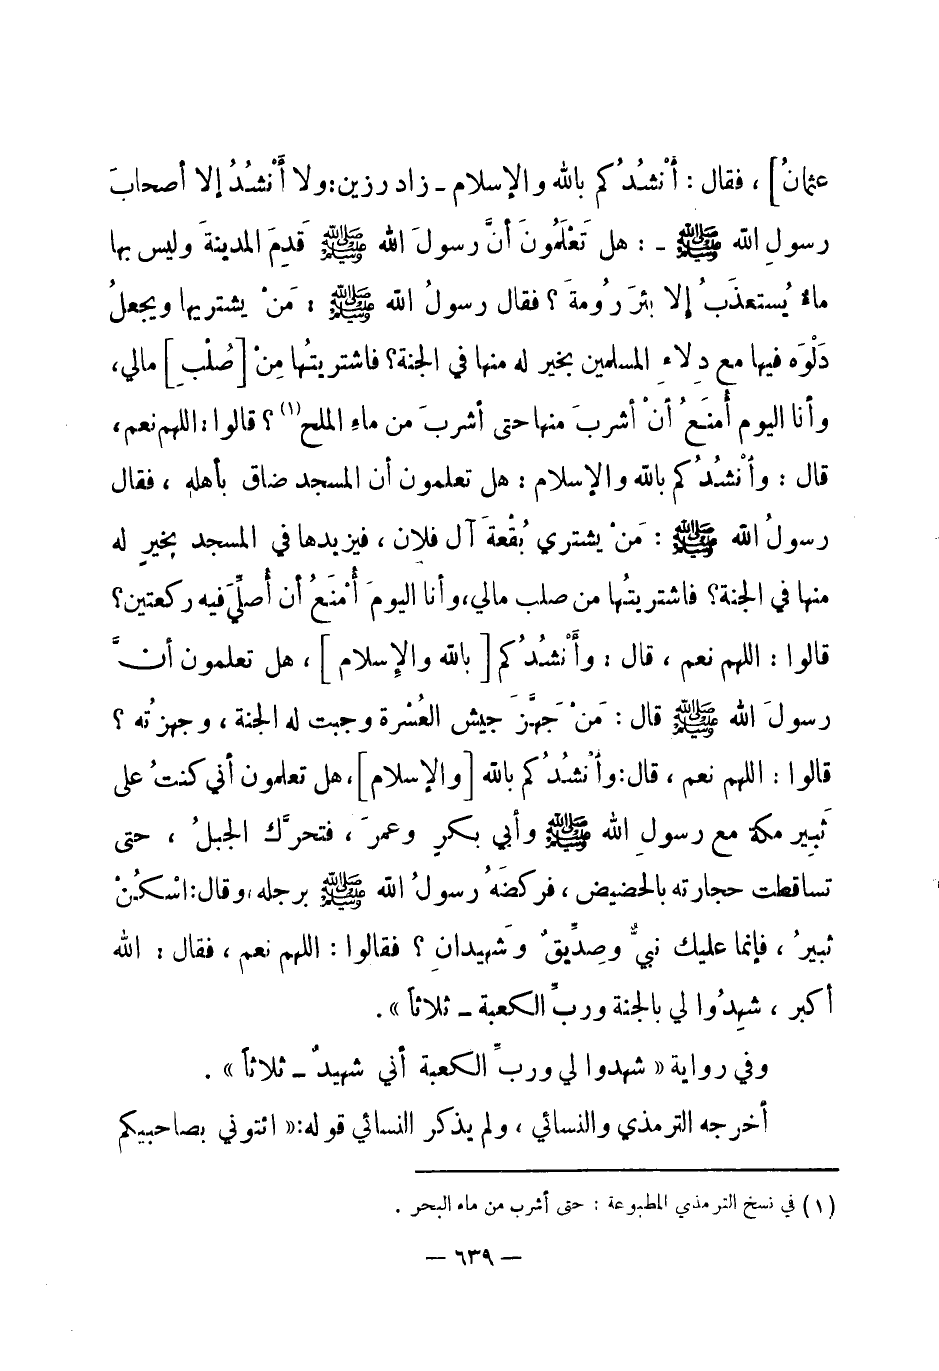 عثمانُ] ، فقال : أَنْشُدُكم بالله والإسلام ـ زاد رزين : ولا أَنْشُدُ إلا أصحابَ
رسولِ الله ﷺ ـ : هل تَعْلَمُونَ أنَّ رسولَ الله ﷺ قَدِمَ المدينةَ وليس بها
ماءٌ يُستعذَبُ إلا بئرَ رُومةَ ؟ فقال رسولُ الله ﷺ : مَنْ يشتريها ويجعلُ
دَلْوَه فيها مع دِلاءِ المسلمين بخير له منها في الجنة؟ فاشتريتُها مِنْ [صُلْبِ] مالي،
وأنا اليوم أُمنَعُ أنْ أشربَ منها حتى أشربَ من ماءِ الملح(١) ؟ قالوا : اللهم نعم ،
قال : وأَنْشُدُكم بالله والإسلام : هل تعلمون أن المسجد ضاق بأهله ، فقال
رسولُ الله ﷺ : مَنْ يشتري بُقْعةَ آل فلان ، فيزيدها في المسجد بخيرٍ له
منها في الجنة؟ فاشتريتُها من صلب مالي، وأنا اليومَ أُمْنَعُ أن أُصلِّيَ فيه ركعتين؟
قالوا : اللهم نعم ، قال : وأَنْشُدُكم [ بالله والإِسلام ] ، هل تعلمون أنَّ
رسولَ الله ﷺ قال : مَنْ جَهَّزَ جيش العُسْرة وجبت له الجنة ، وجهزتُه ؟
قالوا : اللهم نعم ، قال: وأَنْشُدُكم بالله [والإسلام]، هل تعلمون أني كنتُ على
ثَبِير مكة مع رسولِ الله ﷺ وأبي بكرٍ وعمرَ ، فتحرَّك الجبلُ ، حتى
تساقطت حجارته بالحضيض ، فركضَهُ رسولُ الله ﷺ برجله، وقال: اسْكُنْ
ثبيرُ ، فإنما عليك نبيٌّ وصِدِّيقٌ وَشهيدانِ ؟ فقالوا : اللهم نعم ، فقال : الله
أكبر ، شهِدُوا لي بالجنة وربِّ الكعبة ـ ثلاثاً » .
وفي رواية « شهدوا لي وربِّ الكعبة أني شهيدٌ ـ ثلاثاً » .
أخرجه الترمذي والنسائي ، ولم يذكر النسائي قوله: « ائتوني بصاحبيكم
(١) في نسخ الترمذي المطبوعة : حتى أشرب من ماء البحر .
— ٦٣٩ —